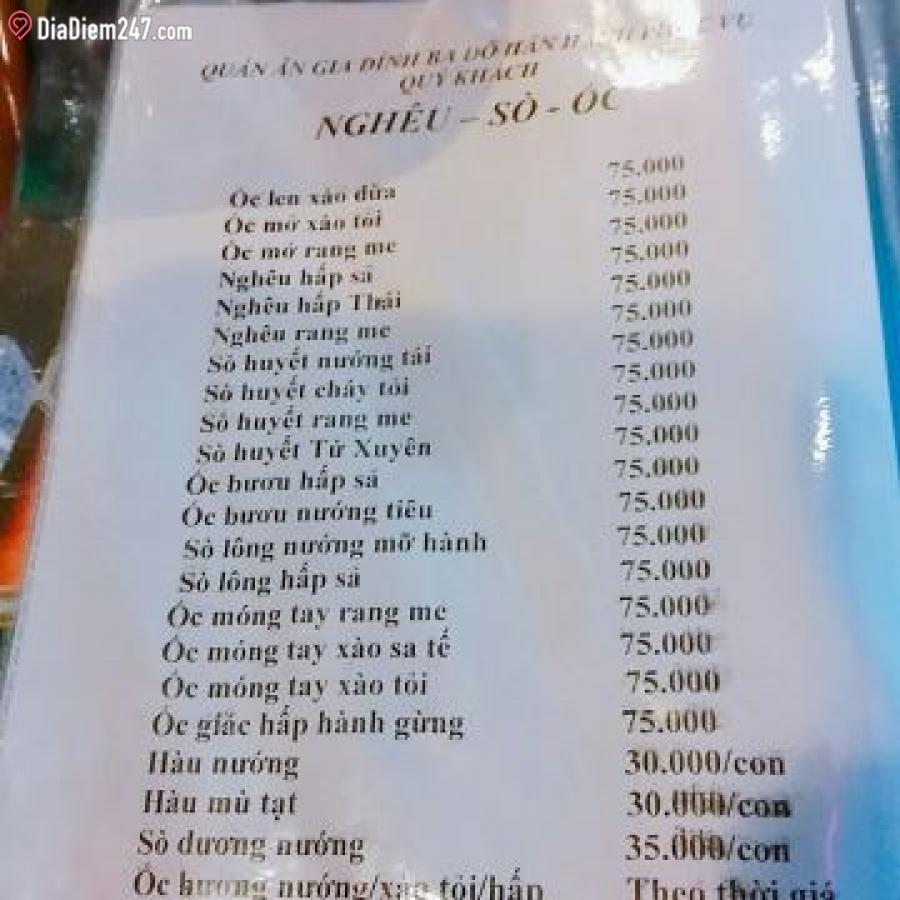 DiaDiem247.com
QUÁN ĂN GIA ĐÌNH BA ĐÔ HÂN HẠNH PHỤC VỤ
QUÝ KHÁCH
NGHÊU – SÒ - ỐC
Ốc len xào dừa 75.000
Ốc mỡ xào tỏi 75.000
Ốc mỡ rang me 75.000
Nghêu hấp sả 75.000
Nghêu hấp Thái 75.000
Nghêu rang me 75.000
Sò huyết nướng tái 75.000
Sò huyết cháy tỏi 75.000
Sò huyết rang me 75.000
Sò huyết Tứ Xuyên 75.000
Ốc bươu hấp sả 75.000
Ốc bươu nướng tiêu 75.000
Sò lông nướng mỡ hành 75.000
Sò lông hấp sả 75.000
Ốc móng tay rang me 75.000
Ốc móng tay xào sa tế 75.000
Ốc móng tay xào tỏi 75.000
Ốc giác hấp hành gừng 75.000
Hàu nướng 30.000/con
Hàu mù tạt 30.000/con
Sò dương nướng 35.000/con
Ốc hương nướng/xào tỏi/hấp Theo thời giá